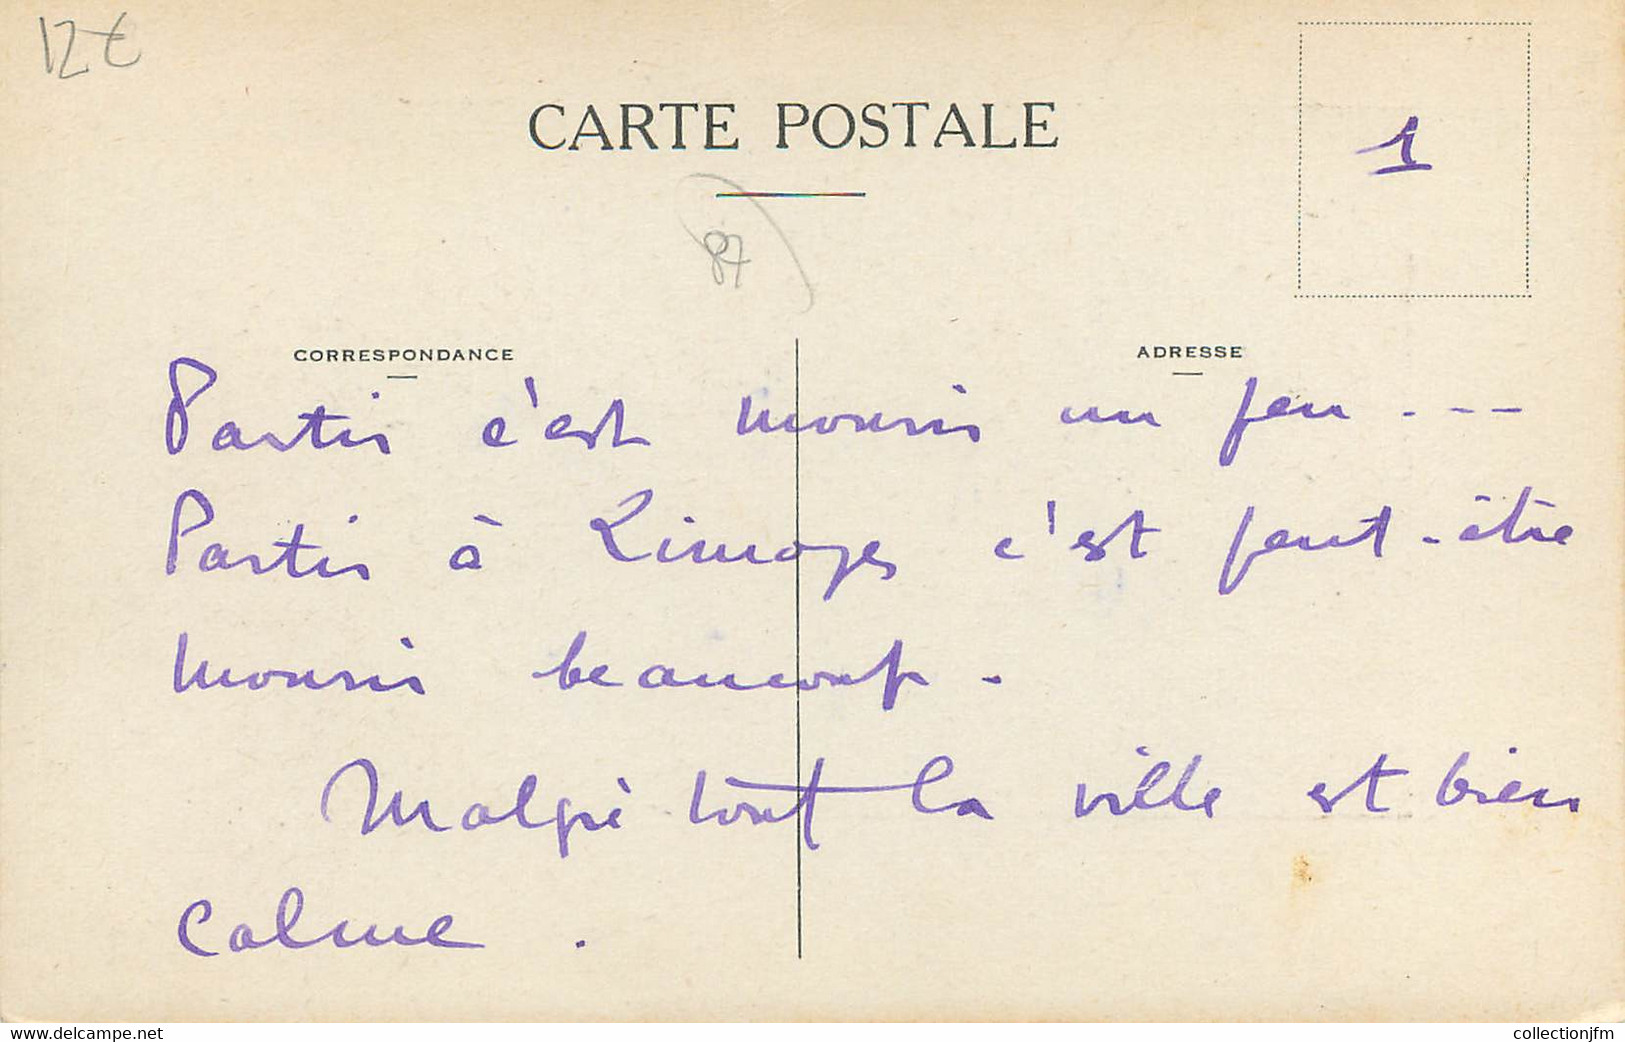 12€
CARTE POSTALE
1
87
CORRESPONDANCE
ADRESSE
Partir c'est mourir un peu ---
Partir à Limoges c'est peut-être
mourir beaucoup.
Malgré tout la ville est bien
calme.
www.delcampe.net
collectionjfm